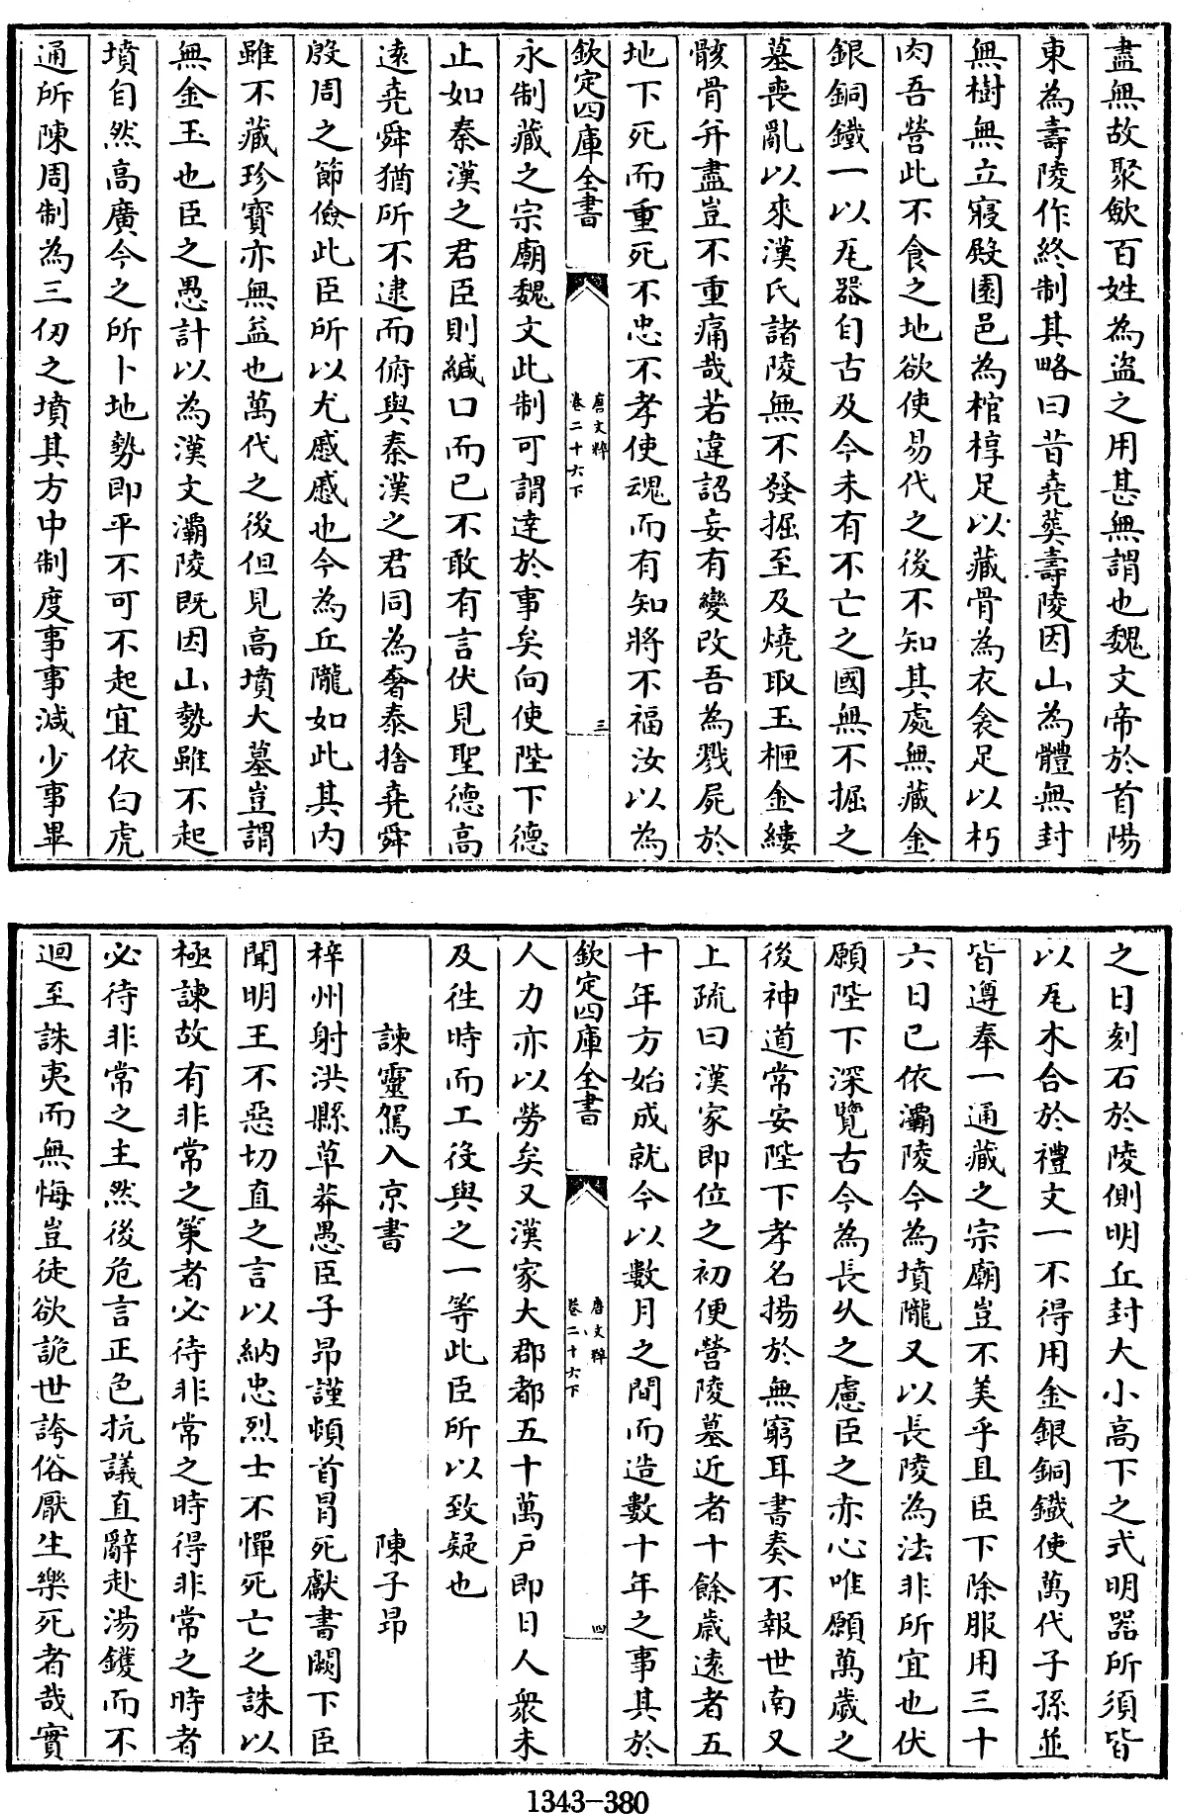 盡無故聚歛百姓為盜之用甚無謂也魏文帝於首陽
東為壽陵作終制其略曰昔堯葬壽陵因山為體無封
無樹無立寢殿園邑為棺椁足以藏骨為衣衾足以朽
肉吾營此不食之地欲使易代之後不知其處無藏金
銀銅鐵一以瓦器自古及今未有不亡之國無不掘之
墓喪亂以來漢氏諸陵無不發掘至及燒取玉柙金縷
骸骨并盡豈不重痛哉若違詔妄有變改吾為戮屍於
地下死而重死不忠不孝使魂而有知將不福汝以為
欽定四庫全書
唐文粹
卷二十六下
三
永制藏之宗廟魏文此制可謂達於事矣向使陛下德
止如秦漢之君臣則緘口而已不敢有言伏見聖德高
遠堯舜猶所不逮而俯與秦漢之君同為奢泰捨堯舜
殷周之節儉此臣所以尤慼慼也今為丘隴如此其内
雖不藏珍寶亦無益也萬代之後但見高墳大墓豈謂
無金玉也臣之愚計以為漢文灞陵既因山勢雖不起
墳自然高廣今之所卜地勢即平不可不起宜依白虎
通所陳周制為三仞之墳其方中制度事事減少事畢
之日刻石於陵側明丘封大小高下之式明器所須皆
以瓦木合於禮文一不得用金銀銅鐵使萬代子孫並
皆遵奉一通藏之宗廟豈不美乎且臣下除服用三十
六日已依灞陵今為墳隴又以長陵為法非所宜也伏
願陛下深覽古今為長久之慮臣之赤心唯願萬歲之
後神道常安陛下孝名揚於無窮耳書奏不報世南又
上疏曰漢家即位之初便營陵墓近者十餘歲遠者五
十年方始成就今以數月之間而造數十年之事其於
欽定四庫全書
唐文粹
卷二十六下
四
人力亦以勞矣又漢家大郡都五十萬戶即日人衆未
及徃時而工役與之一等此臣所以致疑也
諫靈駕入京書 陳子昂
梓州射洪縣草莽愚臣子昂謹頓首冒死獻書闕下臣
聞明王不惡切直之言以納忠烈士不憚死亡之誅以
極諫故有非常之策者必待非常之時得非常之時者
必待非常之主然後危言正色抗議直辭赴湯鑊而不
迴至誅夷而無悔豈徒欲詭世誇俗厭生樂死者哉實
1343-380